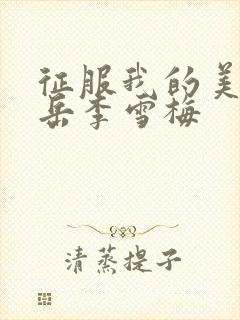 征服我的美
岳李雪梅
清蒸提子